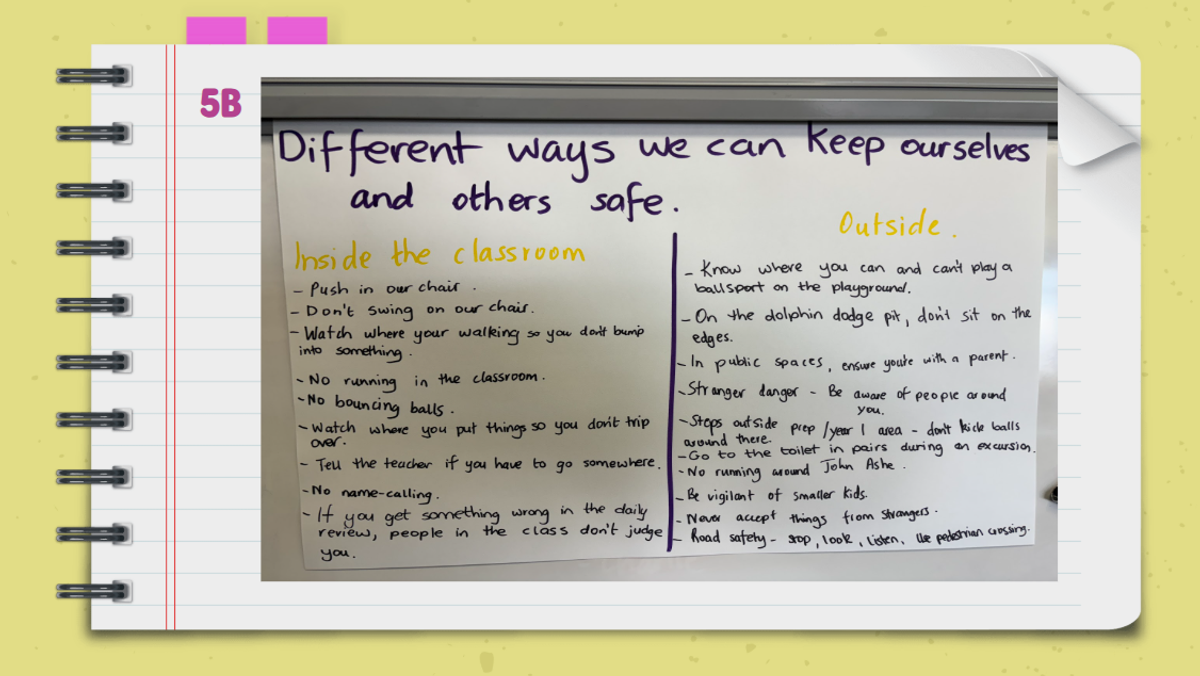 5B
Different ways we can keep ourselves
and others safe.
Inside the classroom
- Push in our chair.
- Don't swing on our chair.
- Watch where your walking so you don't bump
into something.
- No running in the classroom.
- No bouncing balls.
- Watch where you put things so you don't trip
over.
- Tell the teacher if you have to go somewhere.
- No name-calling.
- If you get something wrong in the daily
review, people in the class don't judge
you.
Outside.
- Know where you can and can't play a
ballsport on the playground.
- On the dolphin dodge pit, don't sit on the
edges.
- In public spaces, ensure you're with a parent.
- Stranger danger - Be aware of people around
you.
- Steps outside prep/year 1 area - don't kick balls
around there.
- Go to the toilet in pairs during an excursion.
- No running around John Ashe.
- Be vigilant of smaller kids.
- Never accept things from strangers.
- Road safety - stop, look, listen. Use pedestrian crossing.